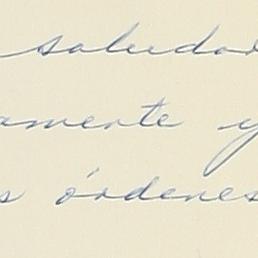 saludar
amente y
s órdenes